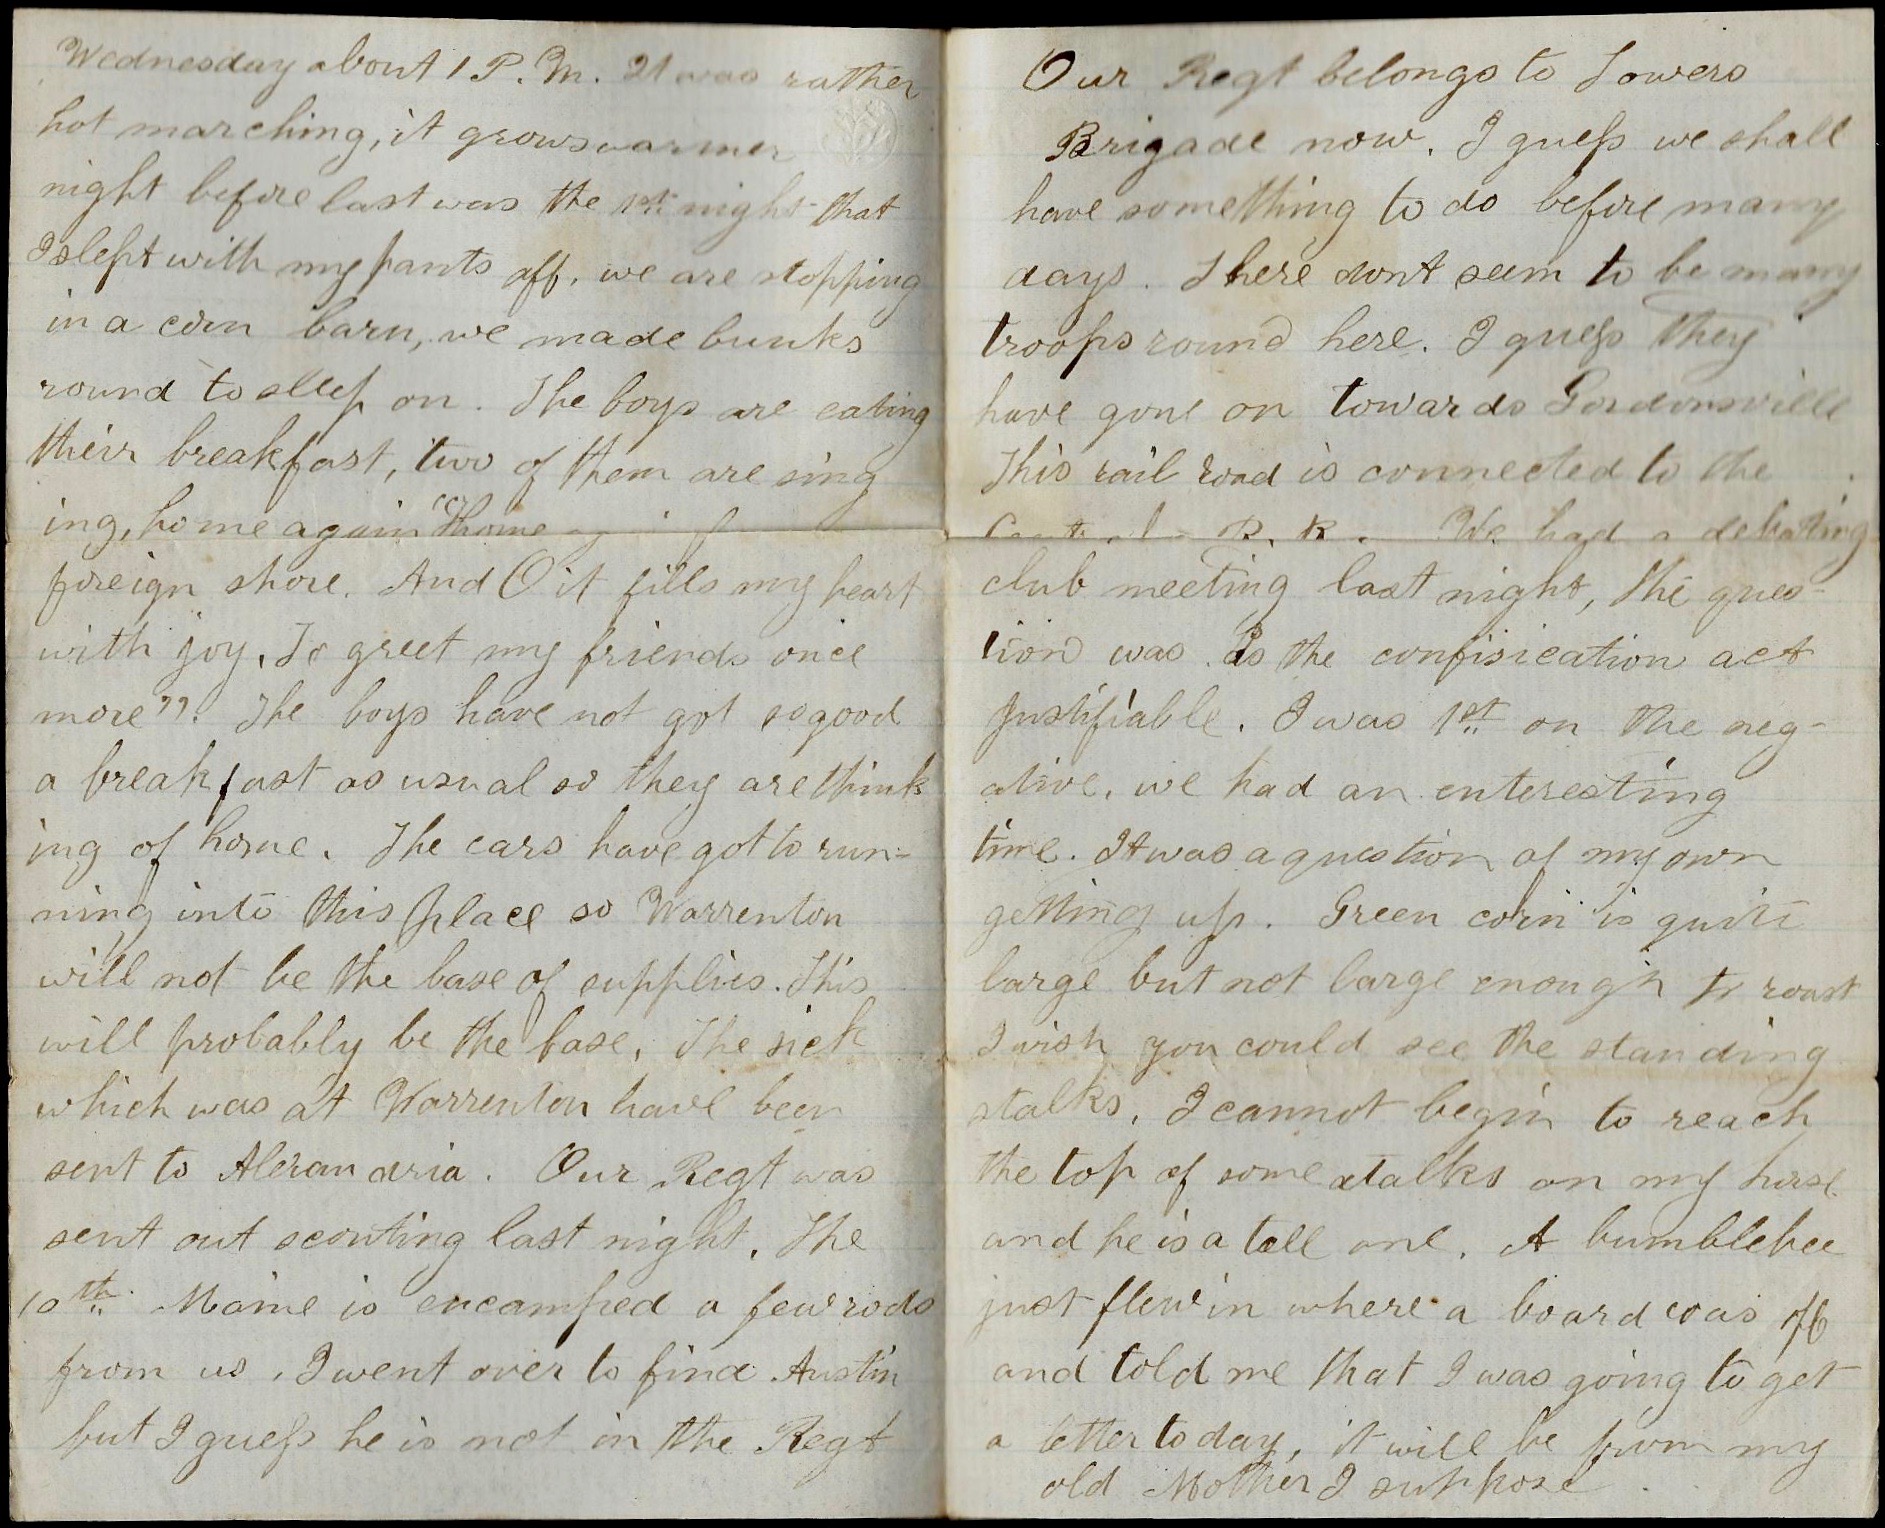 Wednesday about 1 P.M. It was rather
hot marching, it grows warmer
night before last was the 1st night that
I slept with my pants off. we are stopping
in a corn barn, we made bunks
round to sleep on. The boys are eating
their breakfast, two of them are sing
ing, home again home
foreign shore. And O it fills my heart
with joy, To greet my friends once
more". The boys have not got so good
a breakfast as usual so they are think
ing of home. The cars have got to run-
ning into this place so Warrenton
will not be the base of supplies. This
will probably be the base, The sick
which was at Warrenton have been
sent to Alexandria. Our Regt was
sent out scouting last night. The
10th Maine is encamped a few rods
from us, I went over to find Austin
but I guess he is not in the Regt
Our Regt belongs to Towers
Brigade now. I guess we shall
have something to do before many
days. There dont seem to be many
troops round here. I guess they
have gone on towards Gordonsville
This rail road is connected to the
R. R. We had a debating
club meeting last night, the ques-
tion was Is the confisication act
Justifiable. I was 1st on the neg-
ative, we had an enteresting
time. It was a question of my own
getting up. Green corn is quite
large but not large enough to roast
I wish you could see the standing
stalks. I cannot begin to reach
the top of some stalks on my horse
and he is a tall one. A bumblebee
just flew in where a board was off
and told me that I was going to get
a letter to day, it will be from my
old Mother I suppose.